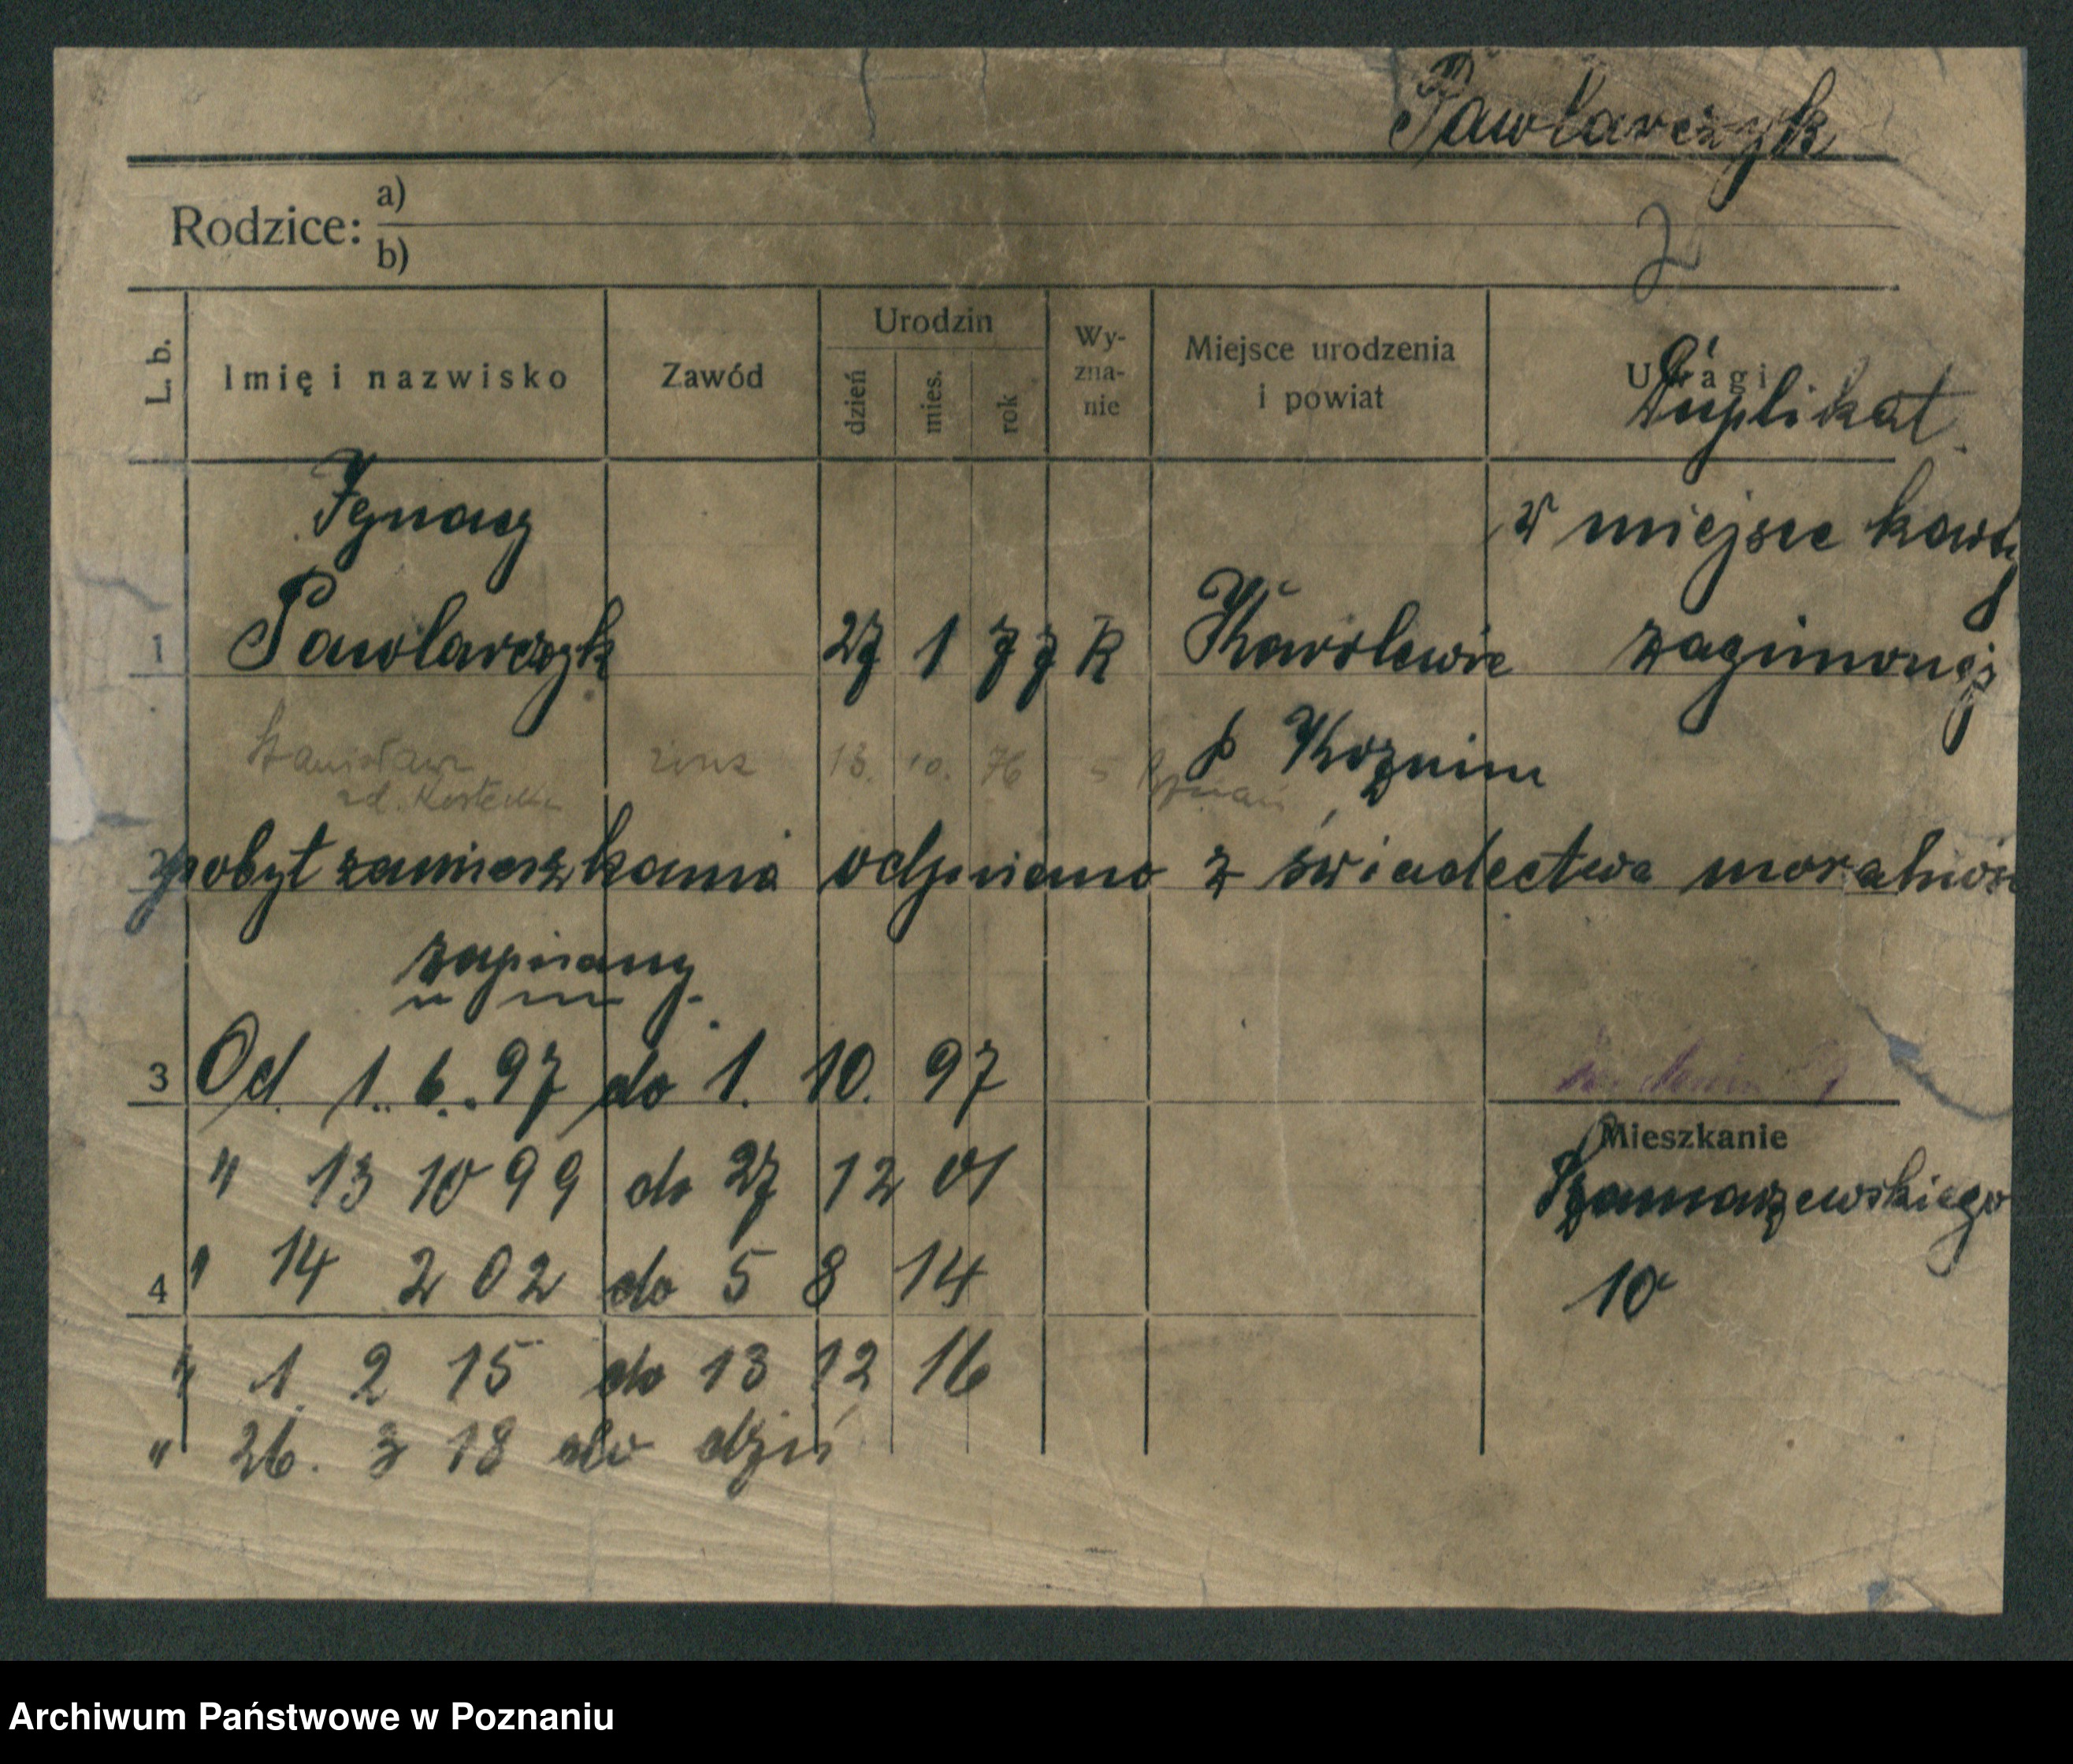 Pawlarczyk
Rodzice: a)
b)
2
L. b. Imię i nazwisko Zawód Urodzin dzień mies. rok Wy-zna-nie Miejsce urodzenia i powiat Uwagi
Duplikat
Ignacy w miejsce karty
1 Pawlarczyk 27 1 77 K Karolewie zaginionej
p Koźmin
Stanisława 13. 10. 76 Poznań
2 pobyt zamieszkania odpisano z świadectwa moralnoś
zapisany
3 Od. 1. 6. 97 do 1. 10. 97
Mieszkanie
" 13 10 99 do 27 12 01 Szamarzewskiego
4 " 14 2 02 do 5 8 14 10
" 1. 2 15 do 13 12 16
" 26. 3 18 do dziś
Archiwum Państwowe w Poznaniu